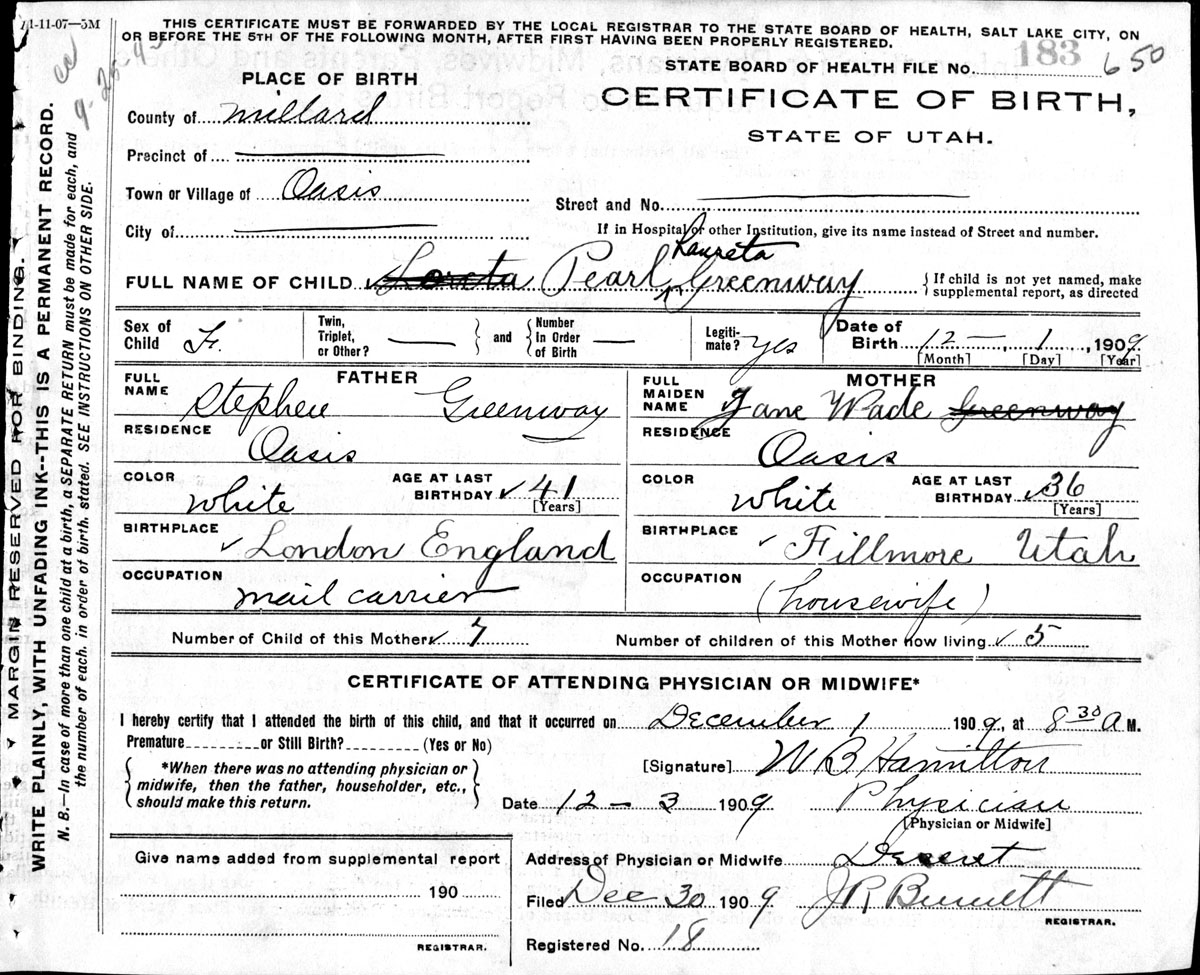 1-11-07—3M
THIS CERTIFICATE MUST BE FORWARDED BY THE LOCAL REGISTRAR TO THE STATE BOARD OF HEALTH, SALT LAKE CITY, ON
OR BEFORE THE 5TH OF THE FOLLOWING MONTH, AFTER FIRST HAVING BEEN PROPERLY REGISTERED.
183
STATE BOARD OF HEALTH FILE No. 650
PLACE OF BIRTH
CERTIFICATE OF BIRTH,
STATE OF UTAH.
County of Millard
Precinct of
Town or Village of Oasis
Street and No.
City of
If in Hospital or other Institution, give its name instead of Street and number.
Laureta
FULL NAME OF CHILD Loreta Pearl Greenway { If child is not yet named, make
supplemental report, as directed
Sex of Child F. Twin, Triplet, or Other? — } and { Number In Order of Birth — Legiti-mate? yes Date of Birth 12 — 1, 1909
[Month] [Day] [Year]
FATHER
FULL NAME Stephen Greenway
RESIDENCE Oasis
COLOR White AGE AT LAST BIRTHDAY 41 [Years]
BIRTHPLACE London England
OCCUPATION mail carrier
MOTHER
FULL MAIDEN NAME Jane Wade Greenway
RESIDENCE Oasis
COLOR White AGE AT LAST BIRTHDAY 36 [Years]
BIRTHPLACE Fillmore Utah
OCCUPATION (housewife)
Number of Child of this Mother 7 Number of children of this Mother now living 5
CERTIFICATE OF ATTENDING PHYSICIAN OR MIDWIFE*
I hereby certify that I attended the birth of this child, and that it occurred on December 1 1909, at 8 30 A M.
Premature or Still Birth? (Yes or No)
*When there was no attending physician or
midwife, then the father, householder, etc.,
should make this return.
[Signature] W B Hamilton
Date 12 — 3 1909 Physician
[Physician or Midwife]
Give name added from supplemental report
190
REGISTRAR.
Address of Physician or Midwife Deseret
Filed Dec 30 1909 J R Bennett
REGISTRAR.
Registered No. 18
MARGIN RESERVED FOR BINDING.
WRITE PLAINLY, WITH UNFADING INK--THIS IS A PERMANENT RECORD.
N. B.—In case of more than one child at a birth, a SEPARATE RETURN must be made for each, and
the number of each, in order of birth, stated. SEE INSTRUCTIONS ON OTHER SIDE.